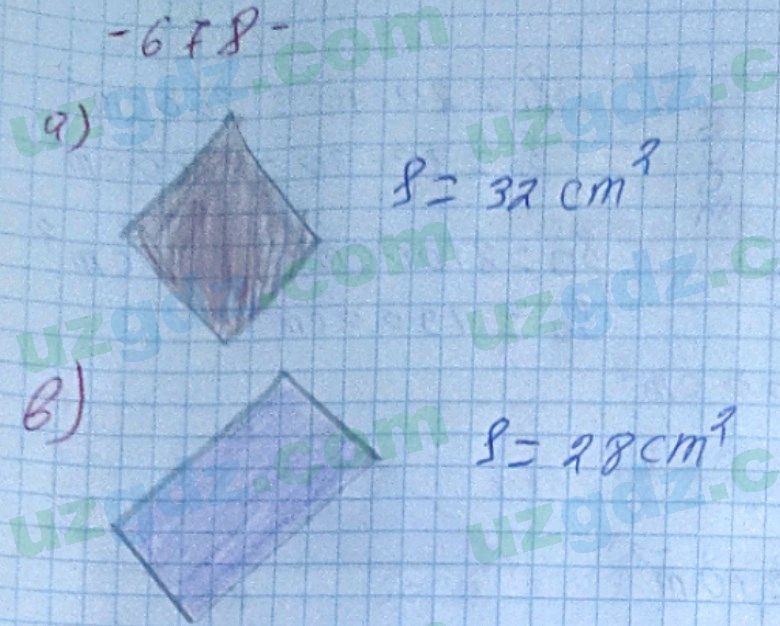 -678-
a)
S = 32 cm²
b)
S = 28 cm²
uzgdz.com
uzgdz.com
uzgdz.com
uzgdz.com
uzgdz.com
uzgdz.com